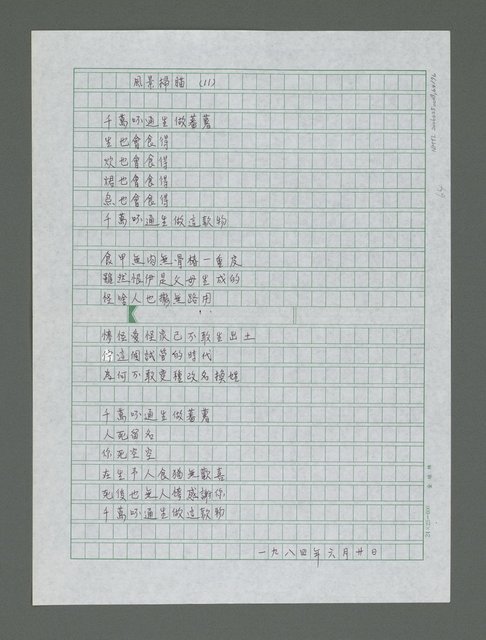 風景掃描 (11)
千萬呣通生做蕃薯
生也會食得
炊也會食得
焢也會食得
烏也會食得
千萬呣通生做這款物
食甲無肉無骨猶一重皮
雖然講伊是父母生成的
怪啥人也攏無路用
情怪愛怪家己不敢生出土
佇這個試管的時代
為何不敢變種改名換姓
千萬呣通生做蕃薯
人死留名
你死空空
在生予人食猶無歡喜
死後也無人情感謝你
千萬呣通生做這款物
一九八四年六月廿日